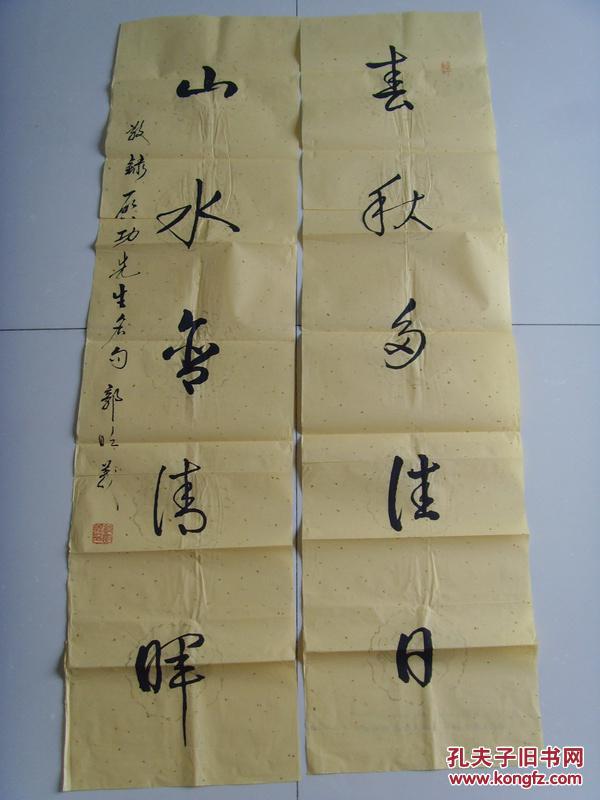 春秋多佳日
山水含清晖
敬录启功先生名句 郭
孔夫子旧书网
www.kongfz.com